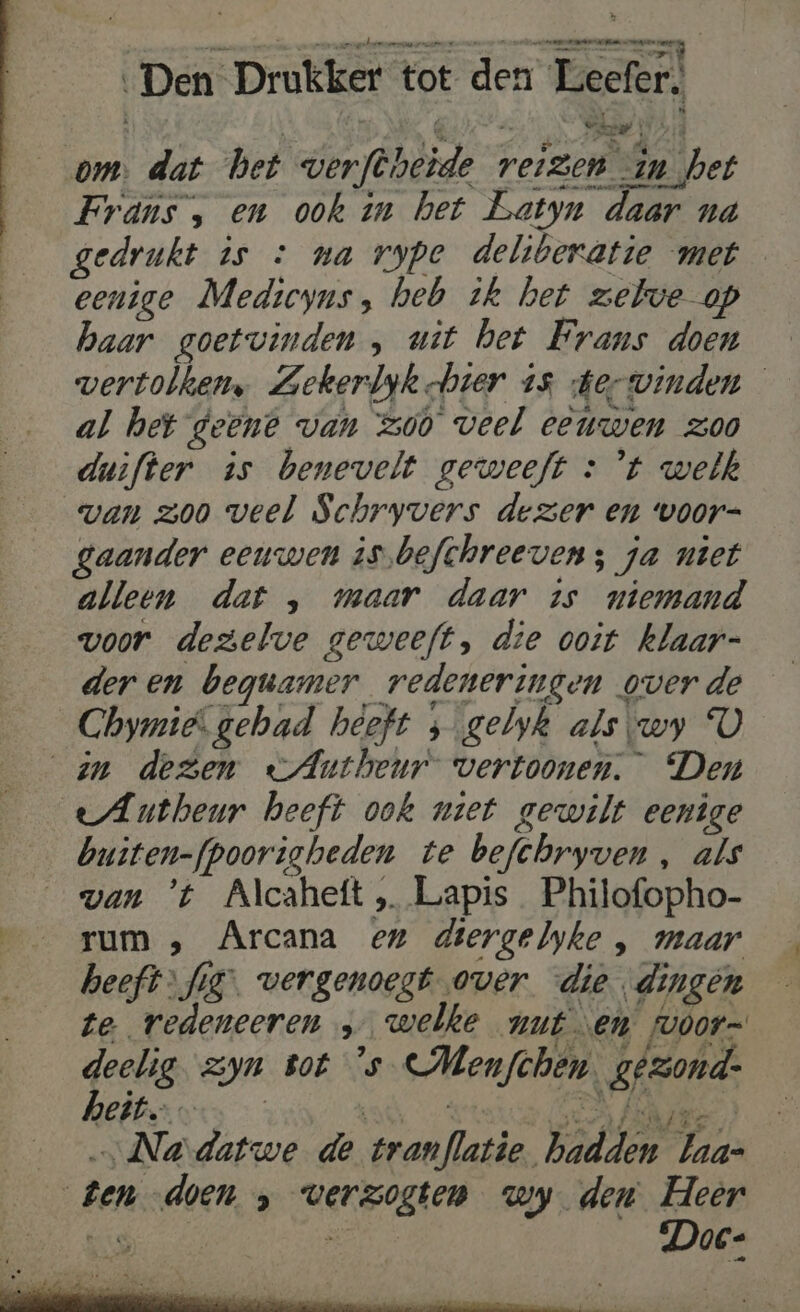 Den Drukker tot den Leeſer.
om dat het verſcheide reizen in het
Frans, en ook in het Latyn daar na
gedrukt is : na rype deliberatie met
eenige Medicyns, heb ik het zelve op
haar goetvinden, uit het Frans doen
vertolken, Zekerlyk hier is te vinden
al het geene van zoo veel eeuwen zoo
duiſter is benevelt geweeſt : 't welk
van zoo veel Schryvers dezer en voor-
gaander eeuwen is beſchreeven; ja niet
alleen dat, maar daar is niemand
voor dezelve geweeſt, die ooit klaar-
der en bequamer redeneringen over de
Chymie gehad heeft; gelyk als wy U
in dezen Autheur vertoonen. Den
Autheur heeft ook niet gewilt eenige
buiten-ſpoorigheden te beſchryven, als
van 't Alcaheſt, Lapis Philoſopho-
rum, Arcana en diergelyke, maar
heeft ſig vergenoegt over die dingen
te redeneeren, welke nut en voor-
deelig zyn tot 's Menſchen gezond-
heit.
Na dat we de tranſlatie hadden laa-
ten doen, verzogten wy den Heer
Doc-